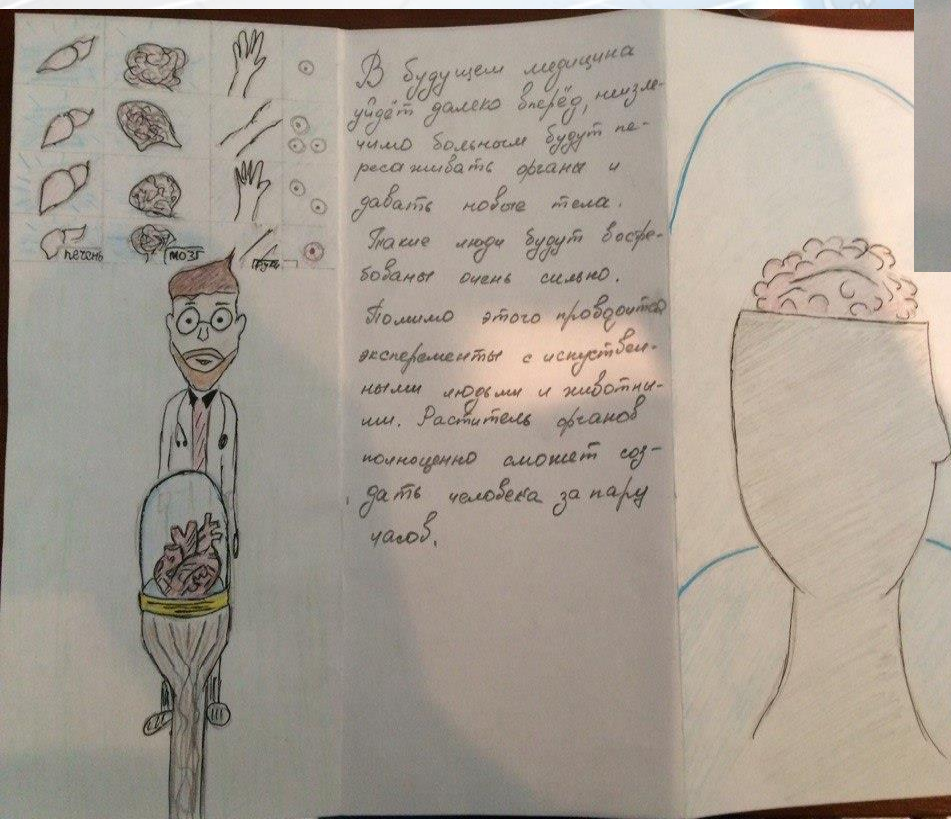 печень
мозг
В будущем медицина
уйдёт далеко вперёд, неизле-
чимо больным будут пе-
ресаживать органы и
давать новые тела.
Такие люди будут востре-
бованы очень сильно.
Помимо этого проводится
эксперементы с искуствен-
ными людьми и животны-
ми. Раститель органов
полноценно сможет соз-
дать человека за пару
часов.